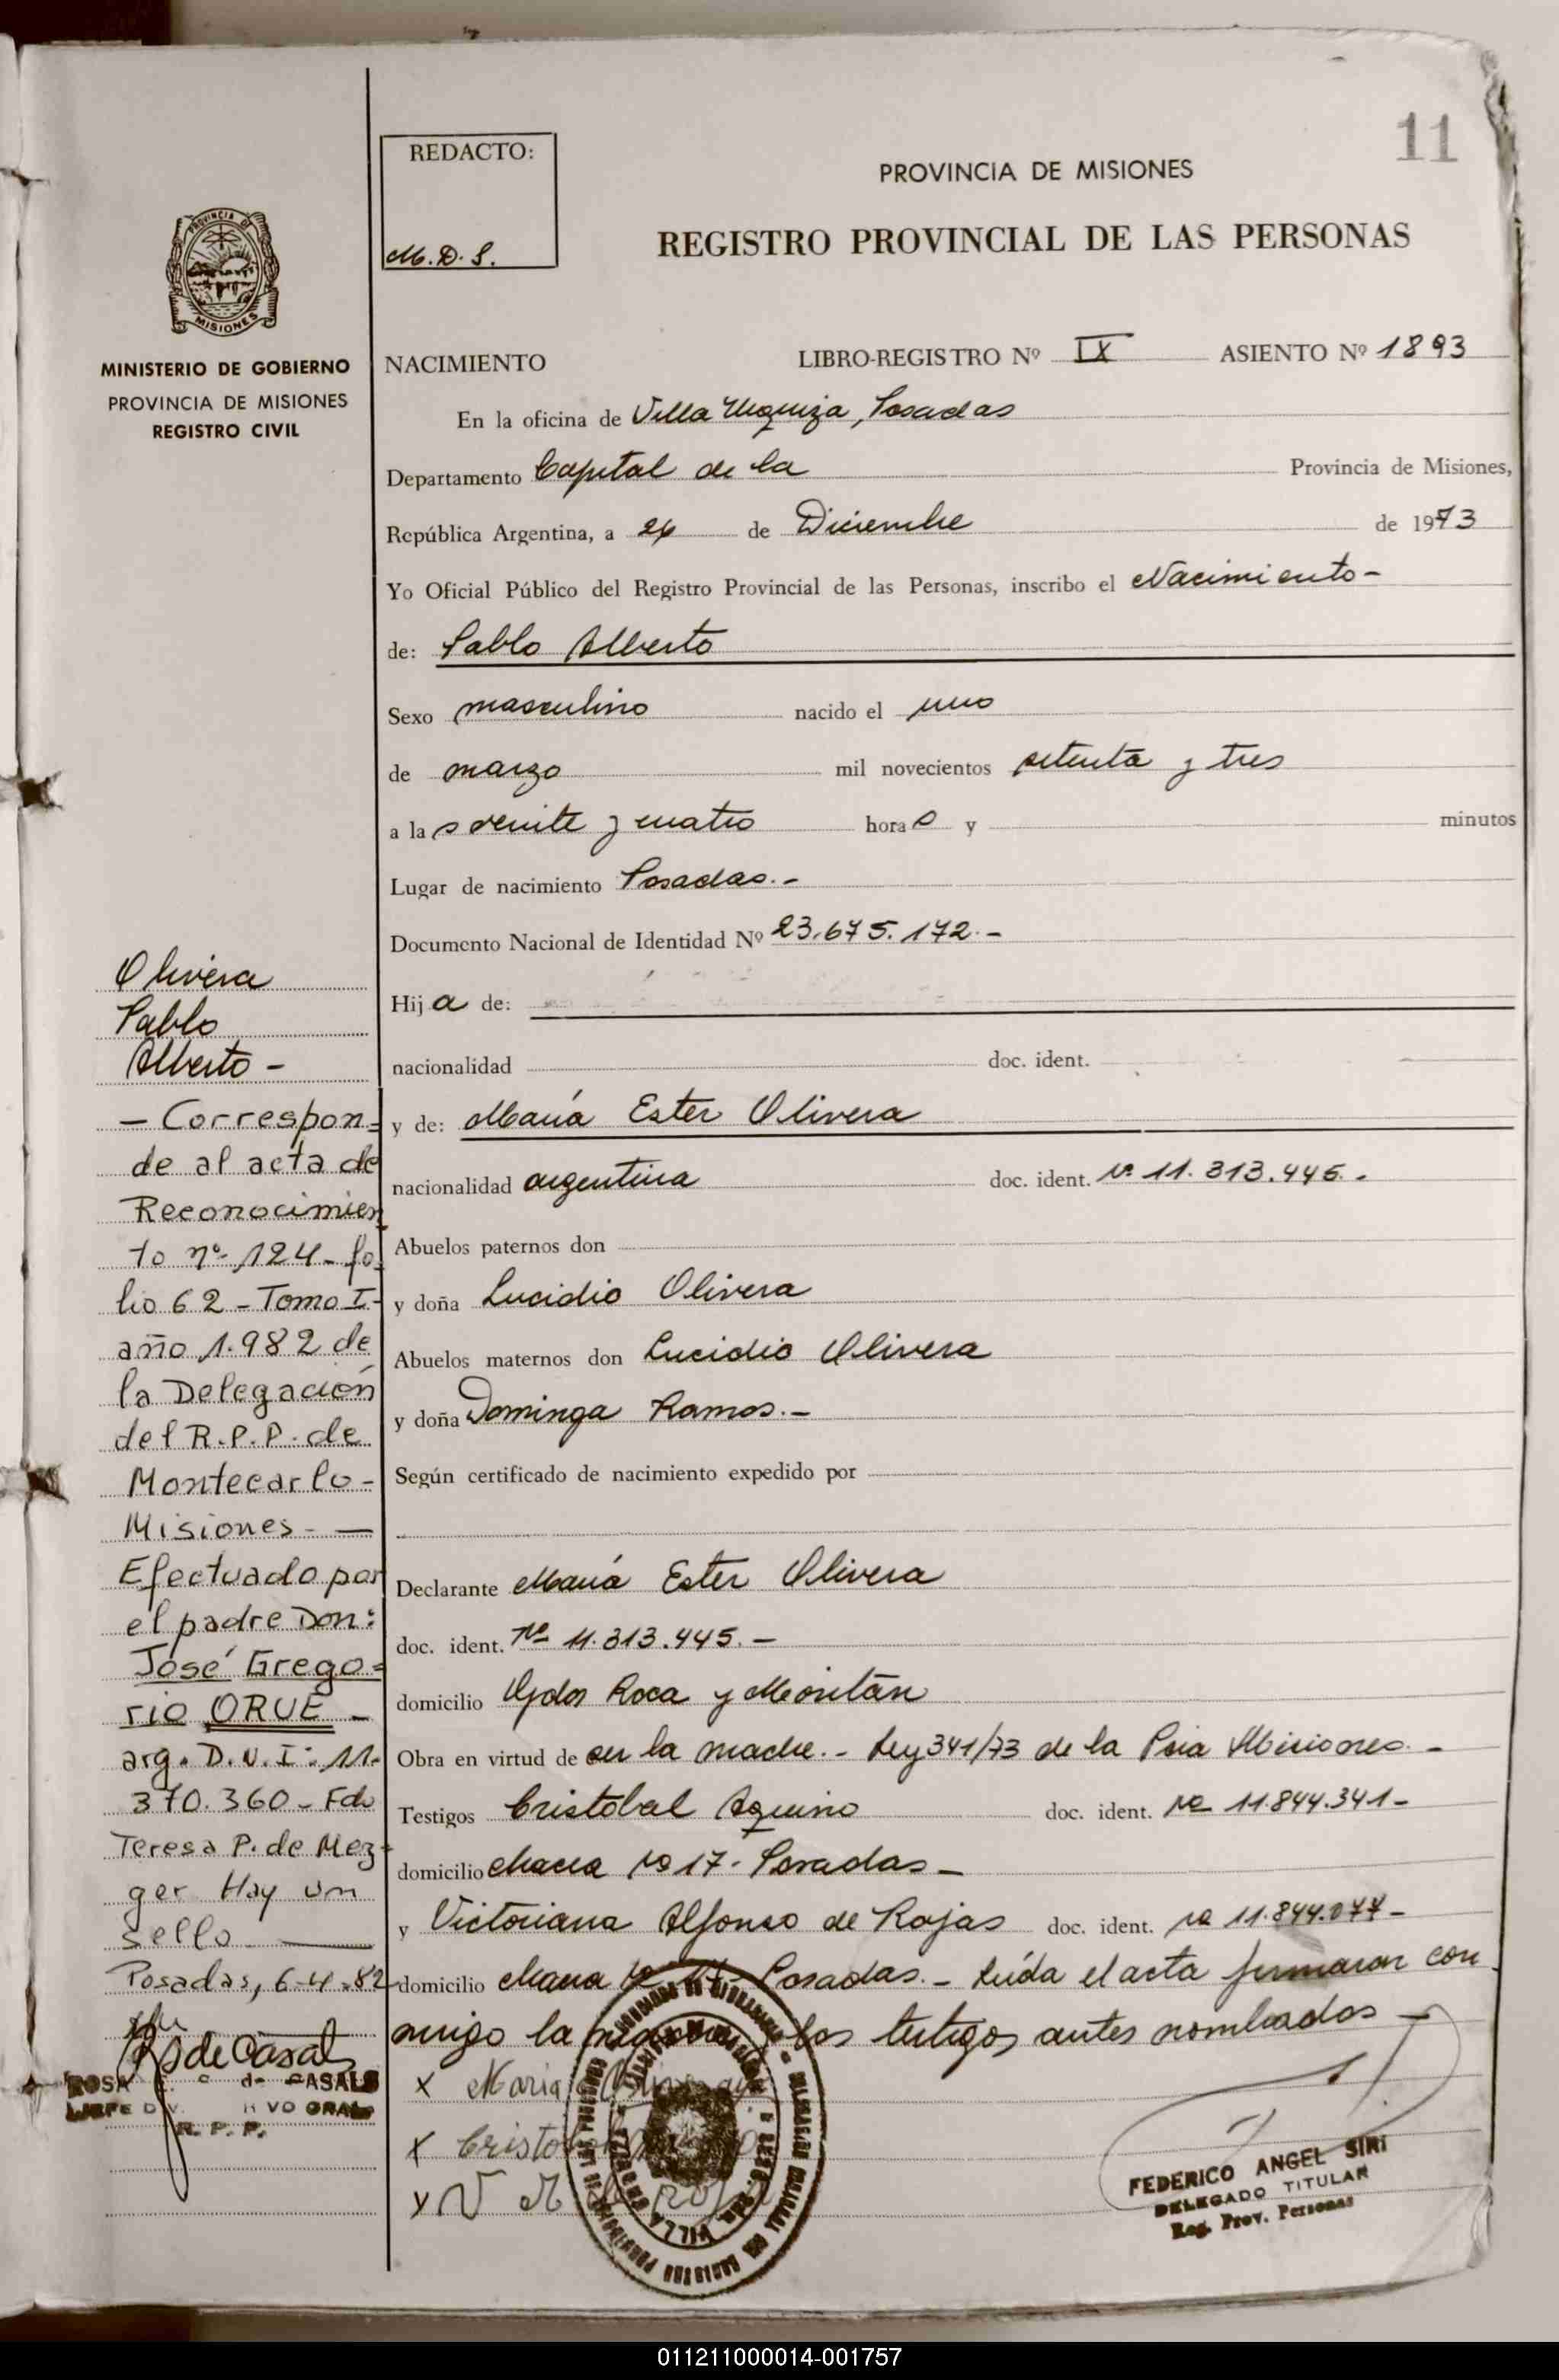 11
REDACTO:
M.D.S.
PROVINCIA DE MISIONES
REGISTRO PROVINCIAL DE LAS PERSONAS
PROVINCIA DE
MISIONES
MINISTERIO DE GOBIERNO
PROVINCIA DE MISIONES
REGISTRO CIVIL
NACIMIENTO LIBRO-REGISTRO Nº IX ASIENTO Nº 1893
En la oficina de Villa Urquiza, Posadas
Departamento Capital de la Provincia de Misiones,
República Argentina, a 26 de Diciembre de 1973
Yo Oficial Público del Registro Provincial de las Personas, inscribo el Nacimiento-
de: Pablo Alberto
Sexo masculino nacido el uno
de marzo mil novecientos setenta y tres
a las veinte y cuatro horas y minutos
Lugar de nacimiento Posadas.-
Documento Nacional de Identidad Nº 23.675.172.-
Hija de:
nacionalidad doc. ident.
y de: María Ester Olivera
nacionalidad argentina doc. ident. Nº 11.313.445.-
Abuelos paternos don
y doña Lucidio Olivera
Abuelos maternos don Lucidio Olivera
y doña Dominga Ramos.-
Según certificado de nacimiento expedido por
Declarante María Ester Olivera
doc. ident. Nº 11.313.445.-
domicilio Gdor Roca y
Obra en virtud de ser la madre.- Ley 341/73 de la Pcia Misiones.-
Testigos Cristobal Aquino doc. ident. Nº 11.844.341-
domicilio chacra Nº 17- Posadas-
y Victoriana Alfonso de Rojas doc. ident. Nº 11.844.077-
domicilio chacra Posadas.- Leída el acta firmaron con
migo la y los testigos antes nombrados-
x Maria
x Cristobal
x V
FEDERICO ANGEL SIRI
DELEGADO TITULAR
Reg. Prov. Personas
Olivera
Pablo
Alberto-
- Correspon=
de al acta de
Reconocimien
to nº 124- fo
lio 62 - Tomo I-
año 1.982 de
la Delegación
del R.P.P. de
Montecarlo-
Misiones-
Efectuado por
el padre Don:
José Grego=
rio ORUE-
arg. D.N.I: 11.
370.360- Fdo
Teresa P. de Mez=
ger Hay un
sello
Posadas, 6-4-82
R de Casals
ROSA E. de CASALS
JEFE DIV. GRAL
R. P. P.
011211000014-001757